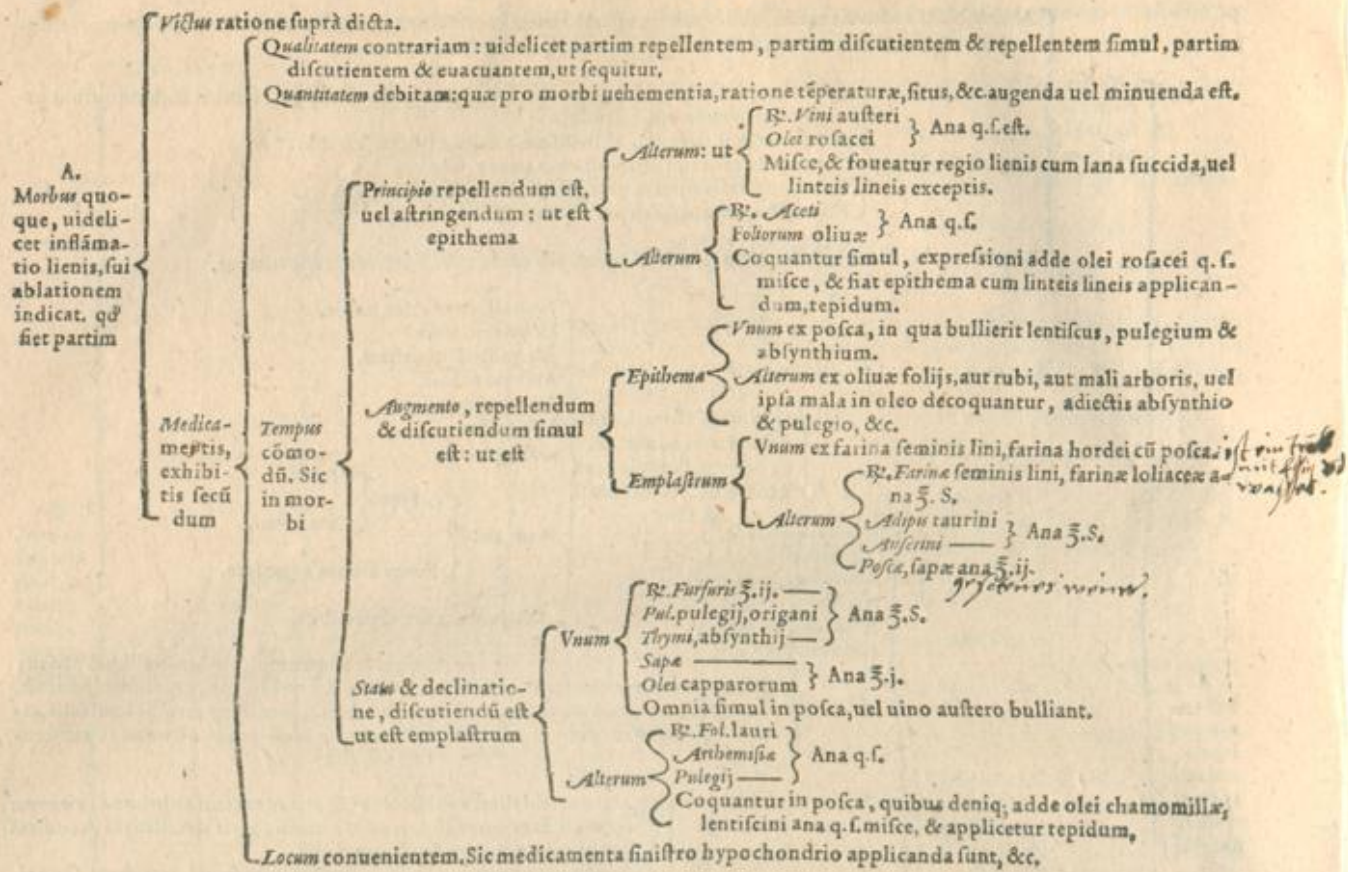 Victus ratione suprà dicta.
A.
Morbus quo-
que, uideli-
cet inflāma-
tio lienis, sui
ablationem
indicat. qđ
fiet partim
Medica-
mentis,
exhibi-
tis secū
dum
Qualitatem contrariam: uidelicet partim repellentem, partim discutientem & repellentem simul, partim
discutientem & euacuantem, ut sequitur.
Quantitatem debitam: quæ pro morbi uehementia, ratione tēperaturæ, situs, &c. augenda uel minuenda est.
Tempus
cōmo-
dū. Sic
in mor-
bi
Principio repellendum est,
uel astringendum: ut est
epithema
Alterum: ut
℞. Vini austeri
Olei rosacei
Ana q.s.est.
Misce, & foueatur regio lienis cum lana succida, uel
linteis lineis exceptis.
Alterum
℞. Aceti
Foliorum oliuæ
Ana q.s.
Coquantur simul, expressioni adde olei rosacei q.s.
misce, & fiat epithema cum linteis lineis applican-
dum, tepidum.
Augmento, repellendum
& discutiendum simul
est: ut est
Epithema
Vnum ex posca, in qua bullierit lentiscus, pulegium &
absynthium.
Alterum ex oliuæ folijs, aut rubi, aut mali arboris, uel
ipsa mala in oleo decoquantur, adiectis absynthio
& pulegio, &c.
Emplastrum
Vnum ex farina seminis lini, farina hordei cū posca.
Alterum
℞. Farinæ seminis lini, farinæ loliaceæ a-
na ℥. S.
Adipis taurini
Anserini ——
Ana ℥.S.
Poscæ, sapæ ana ℥.ij.
Status & declinatio-
ne, discutiendū est
ut est emplastrum
Vnum
℞. Furfuris ℥.ij. —
Pul. pulegij, origani
Thymi, absynthij —
Ana ℥.S.
Sapæ ————
Olei capparorum
Ana ℥.j.
Omnia simul in posca, uel uino austero bulliant.
Alterum
℞. Fol. lauri
Arthemisiæ
Pulegij ——
Ana q.s.
Coquantur in posca, quibus deniq; adde olei chamomillæ,
lentiscini ana q.s. misce, & applicetur tepidum.
Locum conuenientem. Sic medicamenta sinistro hypochondrio applicanda sunt, &c.